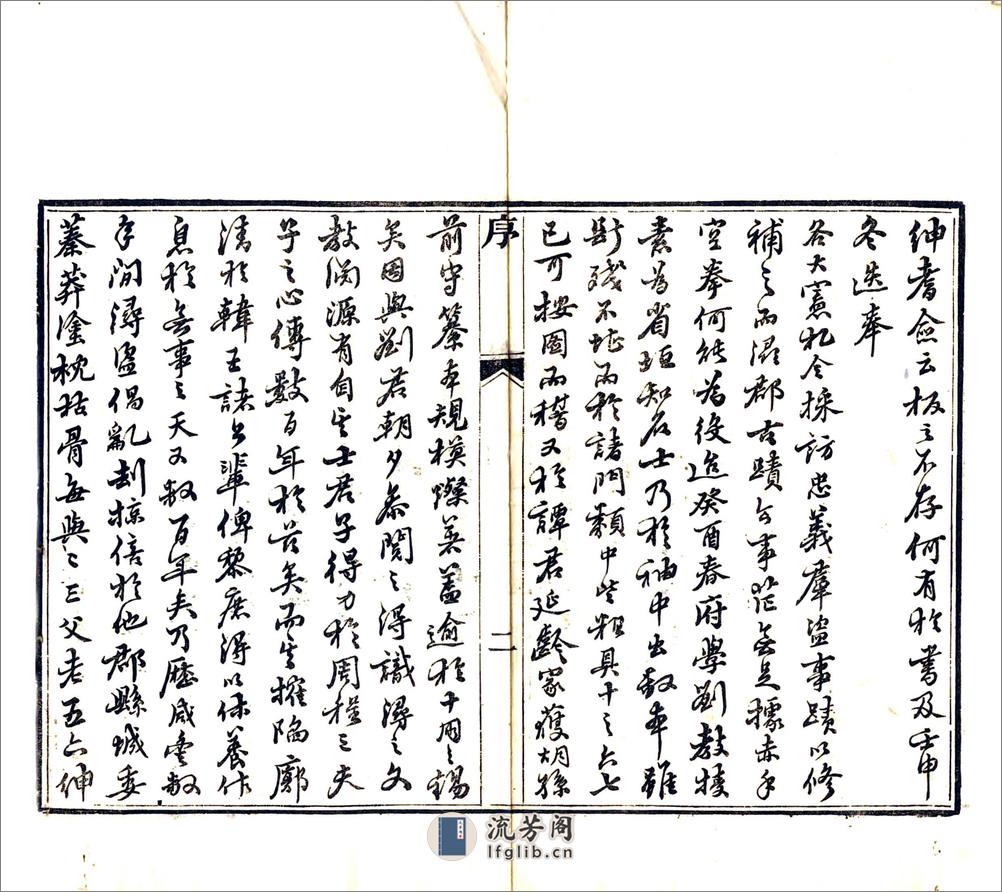 紳耆僉云板之不存何有於書及壬申
冬迭奉
各大憲札令採訪忠義羣盜事蹟以修
補之而潯郡古蹟今事茫無足據赤手
空拳何能為役迨癸酉春府學劉教授
素為省垣知名士乃於袖中出數本雖
斷殘不堪而於諸門類中尚粗具十之六七
已可按圖而稽又於譚君延齡家獲胡孫
序
二
前守纂本規模燦著蓋逾於十朋之錫
矣因與劉君朝夕參閱之得識潯之文
教淵源有自其士君子得力於周程三夫
子之心傳數百年於茲矣而其摧陷廓
清於韓王諸公輩俾黎庶得以休養作
息於無事之天又數百年矣乃歷咸豐數
年間潯盜倡亂刦掠倍於他郡縣城委
蓁莽塗枕枯骨每與二三父老五六紳
流芳阁
lfglib.cn